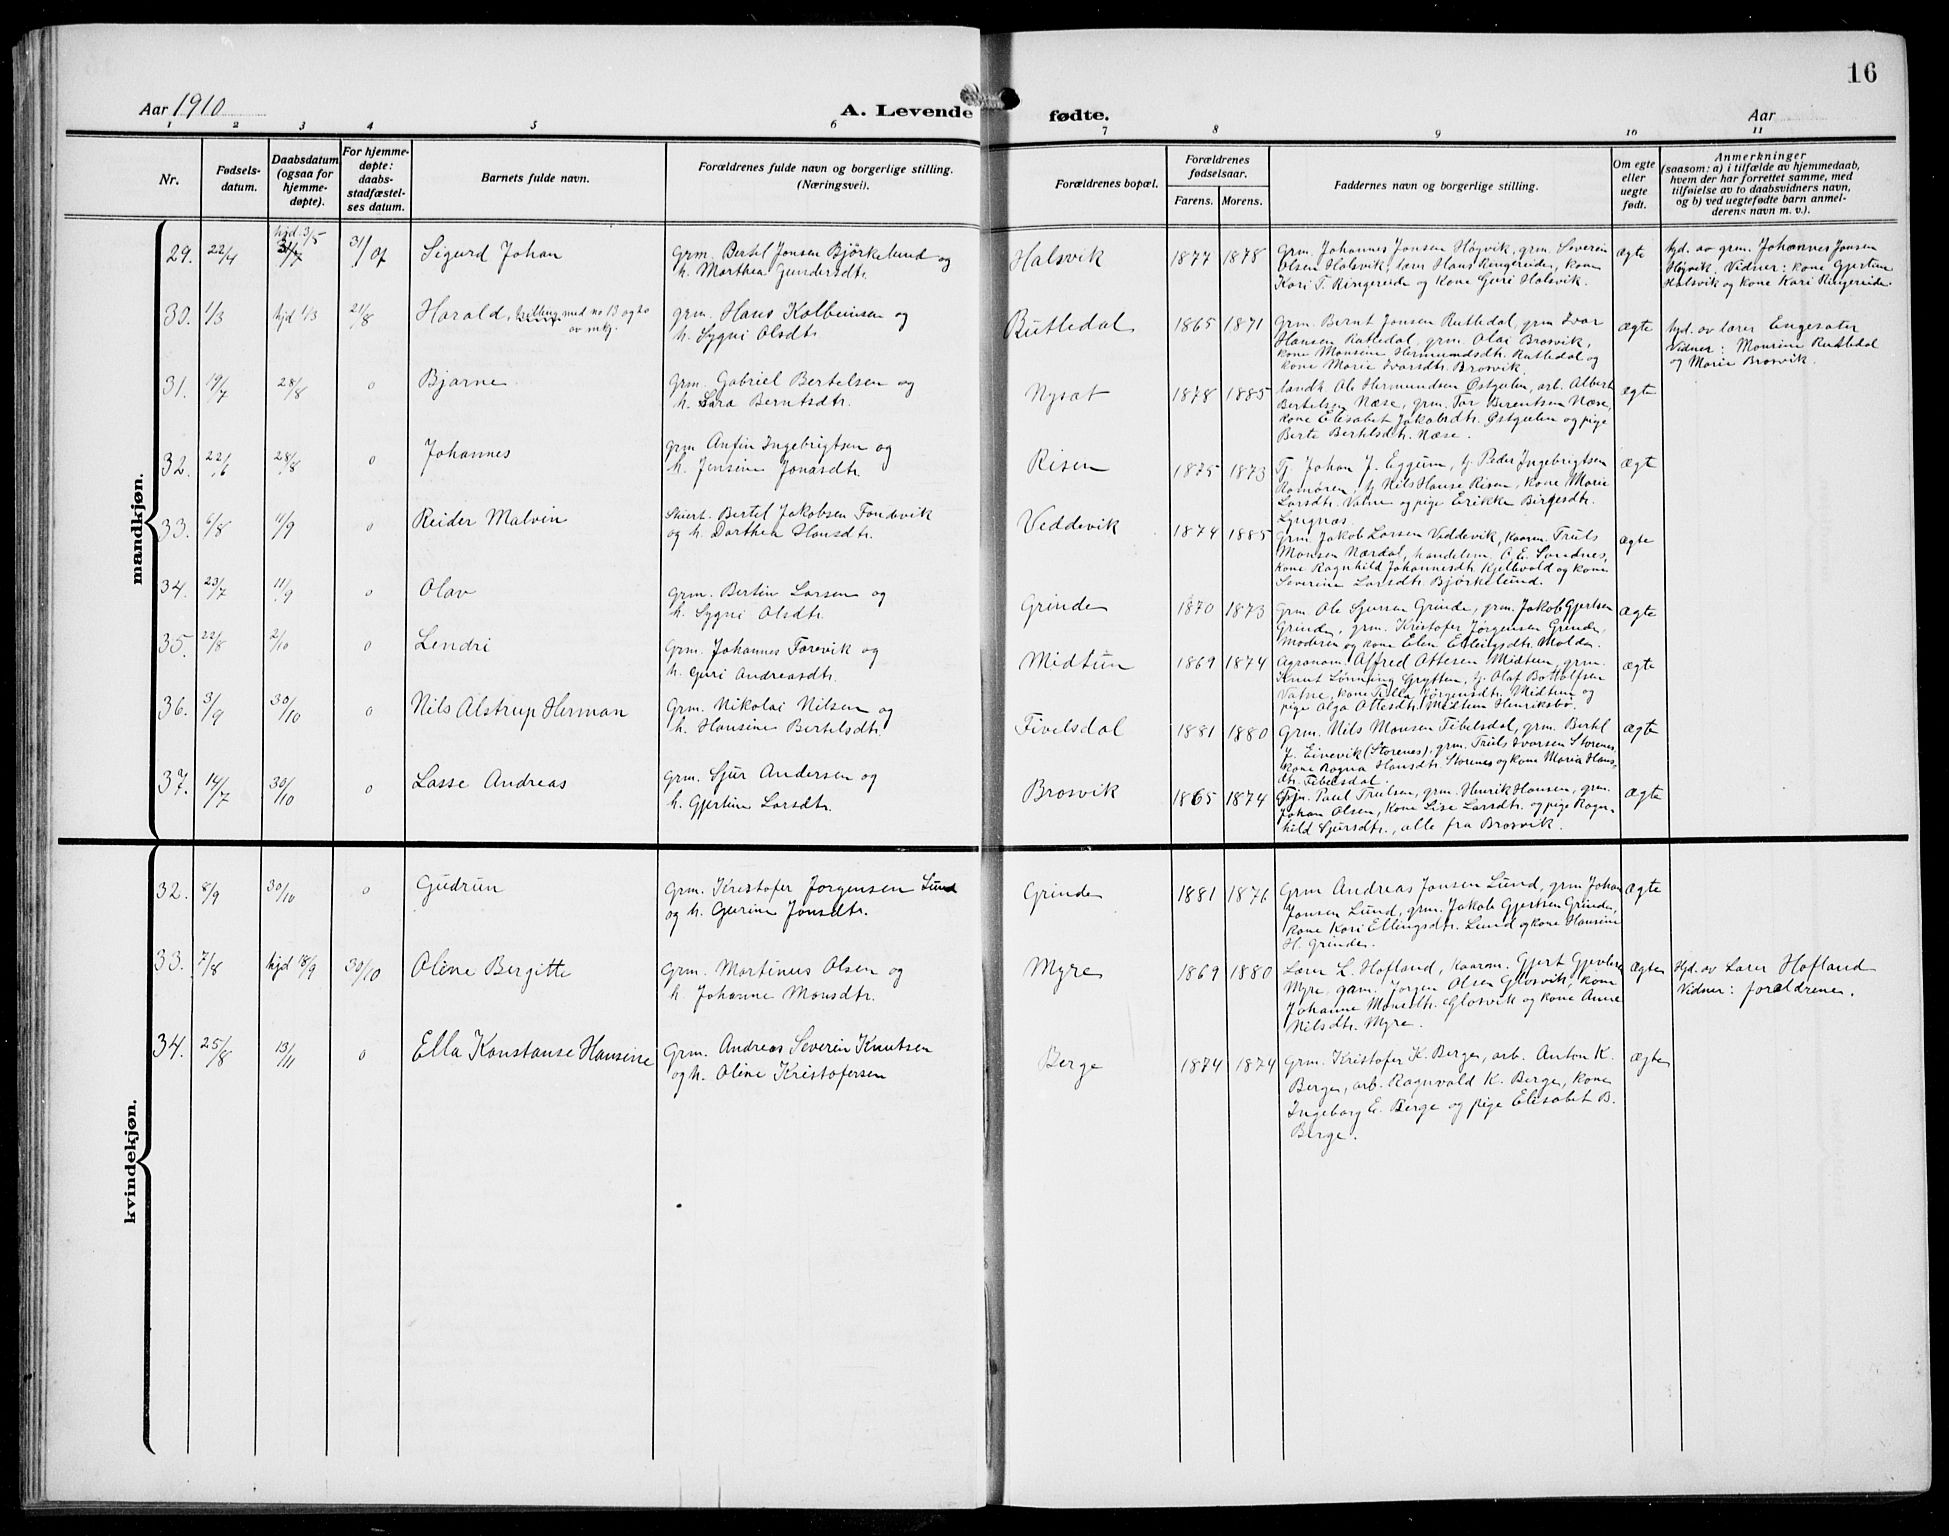 16
Aar 1910
A. Levende fødte.
Aar
1 2 3 4 5 6 7 8 9 10 11
Nr.
Fødsels-
datum.
Daabsdatum
(ogsaa for
hjemme-
døpte).
For hjemme-
døpte:
daabs-
stadfæstel-
ses datum.
Barnets fulde navn.
Forældrenes fulde navn og borgerlige stilling.
(Næringsvei).
Forældrenes bopæl.
Forældrenes
fødselsaar.
Farens. Morens.
Faddernes navn og borgerlige stilling.
Om egte
eller
uegte
født.
Anmerkninger
(saasom: a) i tilfælde av hjemmedaab,
hvem der har forrettet samme, med
tilføielse av to daabsvidners navn,
og b) ved uegtefødte barn anmel-
derens navn m. v.).
mandkjøn.
29. 22/4 hjd. 3/5 31/7 Sigurd Johan
Grm. Bertel Jonsen Bjørkelund og
h. Marthea Gundersdtr.
Halsvik 1877 1878
Grm. Johannes Jonsen Høgvik, grm. Severin
Olsen Halsvik, lærer Hans Ringereide, kone
Kari T. Ringereide og kone Guri Halsvik.
ægte
hjd. av grm. Johannes Jonsen
Høgvik. Vidner: kone Gjertine
Halsvik og kone Kari Ringereide
30. 1/3 hjd 1/3 21/8 Harald, tvilling med no 13 og 20
av mkj.
grm. Hans Kolbeinsen og
h. Sygni Olsdtr.
Rutledal 1865 1871
Grm. Bernt Jonsen Rutledal, grm Ivar
Hansen Rutledal, grm. Olai Brosvik,
kone Monsine Hermundsdtr. Rutledal og
kone Marie Ivarsdtr. Brosvik.
ægte
hjd. av lærer Engesæter
Vidner: Monsine Rutledal
og Marie Brosvik.
31. 19/7 28/8 0 Bjarne
Grm. Gabriel Bertelsen og
h. Sara Berntsdtr.
Nysæt 1878 1885
landh. Ole Hermundsen Østgulen, arb. Albert
Bertelsen Næse, grm. Tor Berentsen Næse,
kone Elisabet Jakobsdtr. Østgulen og pige
Berte Bertelsdtr. Næse.
ægte
32. 22/6 28/8 0 Johannes
grm Anfin Ingebrigtsen og
h. Jensine Jonasdtr.
Risen 1875 1873
Tj. Johan J. Eggum, tj. Peder Ingebrigtsen
Ramøren, tj. Nils Hansen Risen, kone Marie
Larsdtr. Vatne og pige Erikka Birgesdtr.
Lyngnæs.
ægte
33. 6/8 11/9 0 Reider Malvin
Skiert. Bertel Jakobsen Fondevik
og h. Dorthea Hansdtr.
Veddevik 1874 1885
Grm. Jakob Larsen Veddevik, kaarm. Truls
Monsen Nærdal, handelsm. O. E. Sandnes,
kone Ragnhild Johannesdtr. Kjelbvold og kone
Severine Larsdtr. Bjørkelund.
ægte
34. 23/7 11/9 0 Olav
grm. Bertin Larsen og
h. Sygni Olsdtr.
Grinde 1870 1873
Grm Ole Sjursen Grinde, grm. Jakob Gjertsen
Grinde, grm. Kristofer Jørgensen Grinde,
Moderen og kone Elen Ellingsdtr. Molde.
ægte
35. 22/8 2/10 0 Lendri
Grm. Johannes Farevik og
h. Guri Andreasdtr.
Midtun 1869 1874
Agronom. Alfred Attesen Midtun, grm.
Knut Lønning Grytten, tj. Olaf Bottolfsen
Vatne, kone Tilla Jørgensdtr. Midtun og
pige Alga Attesdtr. Midtun Henriksbø.
ægte
36. 3/9 30/10 0 Nils Alstrup Herman
Grm. Nikolai Nilsen og
h. Hansine Bertelsdtr.
Fivelsdal 1881 1880
Grm. Nils Monsen Fibelsdal, grm. Bertel
J. Eivevik (Storenes), grm. Truls Ivarsen Storenes,
kone Ragna Hansdtr. Storenes og kone Maria Hans-
dtr. Fibelsdal.
ægte
37. 14/7 30/10 0 Lasse Andreas
Grm. Sjur Andersen og
h. Gjertine Larsdtr.
Brosvik 1865 1874
Paul Trulsen, grm. Henrik Hansen, grm.
Johan Olsen, kone Lise Larsdtr. og pige Ragn-
hild Sjursdtr., alle fra Brosvik.
ægte
kvindekjøn.
32. 8/9 30/10 0 Gudrun
Grm. Kristofer Jorgensen Lund
og h. Gurine Jonsdtr.
Grinde 1881 1876
Grm Andreas Jonsen Lund, grm Johan
Jonsen Lund, grm. Jakob Gjertsen Grinde,
kone Kari Ellingsdtr. Lund og kone Hansine
H. Grinde.
ægte
33. 7/8 hjd 18/9 30/10 Oline Bergitte
Grm. Martinus Olsen og
h. Johanne Monsdtr.
Myre 1869 1880
Lærer L. Hofland, kaarm. Gjert
Myre, grm. Jorgen Olsen Glosvik, kone
Johanne Monsdtr. Glosvik og kone Anne
Nilsdtr. Myre.
ægte
Hjd. av Lærer Hofland
Vidner: forældrene.
34. 25/8 13/11 0 Ella Konstanse Hansine
Grm. Andreas Severin Knutsen
og h. Oline Kristofersen
Berge 1874 1874
Grm. Kristofer K. Berge, arb. Anton K.
Berge, arb. Ragnvald K. Berge, kone
Ingeborg E. Berge og pige Elisabet B.
Berge.
ægte